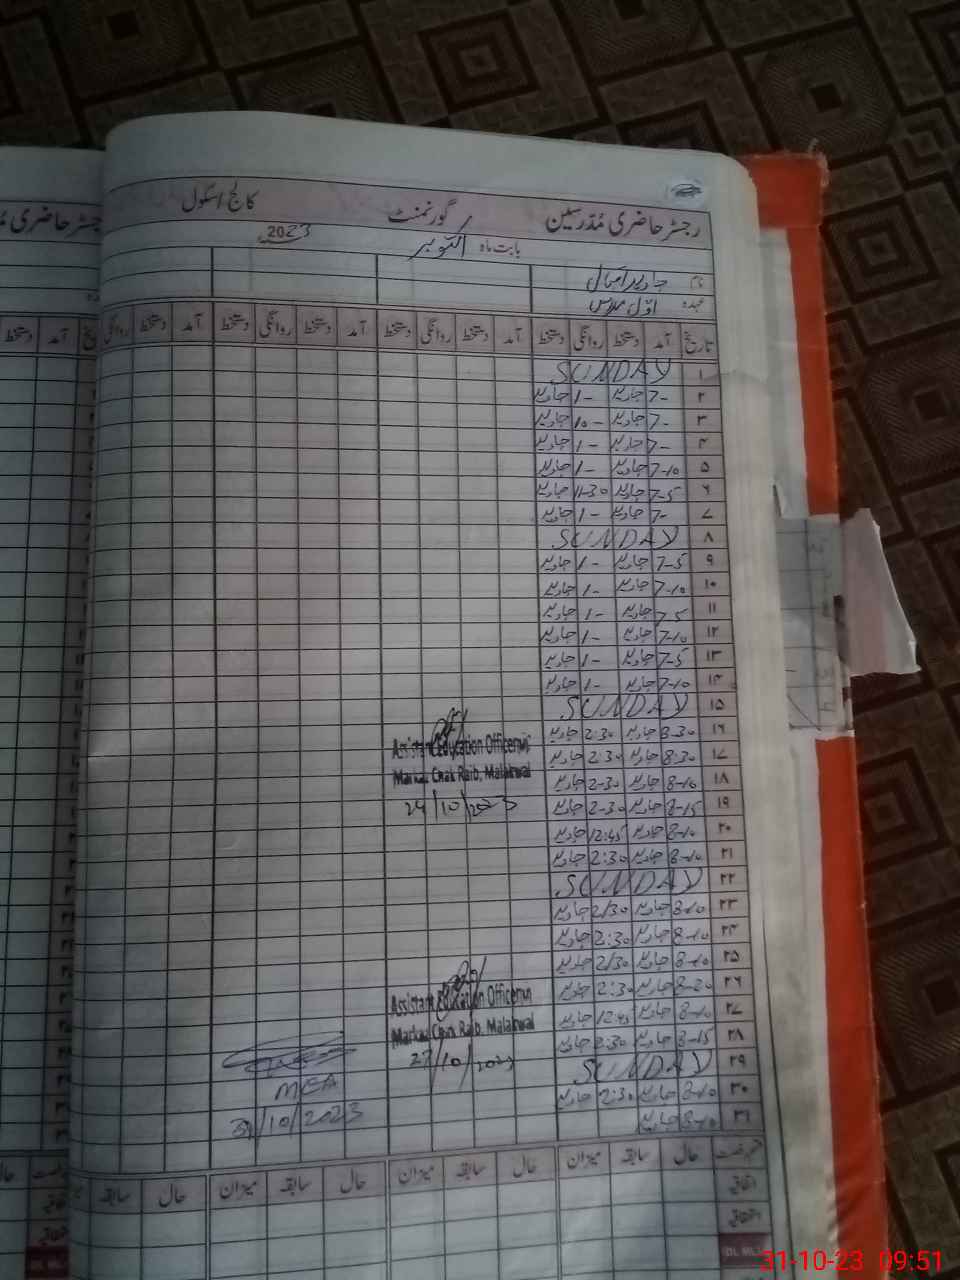 رجسٹر حاضری مُدرسین گورنمنٹ کالج اسکول
بابت ماہ اکتوبر 2023
نام جاوید اقبال
عہدہ اوّل مدرس
تاریخ آمد دستخط روانگی دستخط آمد دستخط روانگی دستخط آمد دستخط روانگی دستخط آمد دستخط روانگی
۱ SUNDAY
۲ 7- جاوید 1- جاوید
۳ 7- جاوید 10- جاوید
۴ 7- جاوید 1- جاوید
۵ 7-10 جاوید 1- جاوید
۶ 7-5 جاوید 11-30 جاوید
۷ 7- جاوید 1- جاوید
۸ SUNDAY
۹ 7-5 جاوید 1- جاوید
۱۰ 7-10 جاوید 1- جاوید
۱۱ 7-5 جاوید 1- جاوید
۱۲ 7-10 جاوید 1- جاوید
۱۳ 7-5 جاوید 1- جاوید
۱۴ 7-10 جاوید 1- جاوید
۱۵ SUNDAY
۱۶ 8-30 جاوید 2:30 جاوید
۱۷ 8:30 جاوید 2:30 جاوید
۱۸ 8-10 جاوید 2-30 جاوید
۱۹ 8-15 جاوید 2-30 جاوید
۲۰ 8-10 جاوید 12:45 جاوید
۲۱ 8-10 جاوید 2:30 جاوید
۲۲ SUNDAY
۲۳ 8-10 جاوید 2/30 جاوید
۲۴ 8-10 جاوید 2:30 جاوید
۲۵ 8-10 جاوید 2/30 جاوید
۲۶ 8-20 جاوید 2:30 جاوید
۲۷ 8-10 جاوید 12:45 جاوید
۲۸ 8-15 جاوید 2:30 جاوید
۲۹ SUNDAY
۳۰ 8-10 جاوید 2:30 جاوید
۳۱ 8-10 جاوید
Assistant Education Officer
Markaz Chak Raib, Malakwal
24/10/2023
Assistant Education Officer
Markaz Chak Raib, Malakwal
27/10/2023
MEA
31/10/2023
حال سابقہ میزان حال سابقہ میزان حال سابقہ میزان حال سابقہ
اتفاقیہ
31-10-23 09:51